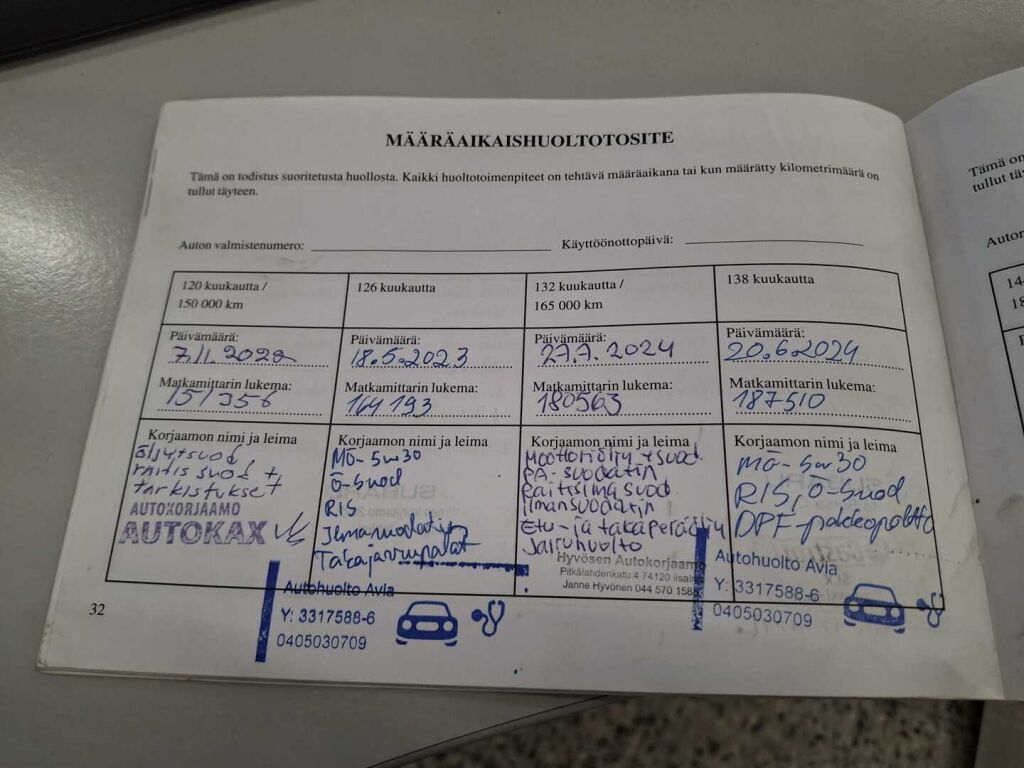 MÄÄRÄAIKAISHUOLTOTOSITE
Tämä on todistus suoritetusta huollosta. Kaikki huoltotoimenpiteet on tehtävä määräaikana tai kun määrätty kilometrimäärä on
tullut täyteen.
Auton valmistenumero:
Käyttöönottopäivä:
120 kuukautta /
150 000 km
Päivämäärä:
7.11.2022
Matkamittarin lukema:
151 356
Korjaamon nimi ja leima
öljytsuod
raitis suod +
tarkistukset
AUTOKORJAAMO
AUTOKAX
126 kuukautta
Päivämäärä:
18.5.2023
Matkamittarin lukema:
164 193
Korjaamon nimi ja leima
Mö-5w30
Ö-Suod
RIS
Ilmansuodatin
Takajarrupalat
Autohuolto Avia
Y: 3317588-6
0405030709
132 kuukautta /
165 000 km
Päivämäärä:
27.7.2024
Matkamittarin lukema:
180563
Korjaamon nimi ja leima
Moottoriöljy+suod.
PA-suodatin
Raitisilmasuod
ilmansuodatin
Etu-ja takaperäöljy
Jarruhuolto
Hyvösen Autokorjaamo
Pitkälahdenkatu 4 74120 Iisalmi
Janne Hyvönen 044 570 1586
138 kuukautta
Päivämäärä:
20.6.2024
Matkamittarin lukema:
187510
Korjaamon nimi ja leima
Mö-5w30
RIS, Ö-Suod
DPF-pakkopoltto
Autohuolto Avia
Y: 3317588-6
0405030709
32
Tämä on
tullut